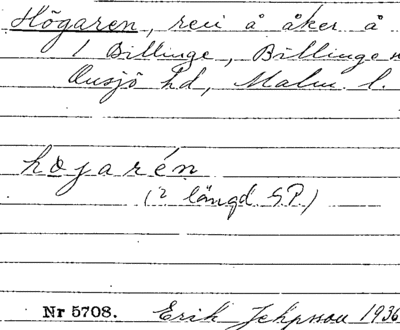 Högaren, ren å åker å
1 Billinge, Billinge
Onsjö hd, Malm. l.
högarén
(2 längd G.P.)
Nr 5708. Erik Jeppsson 1936